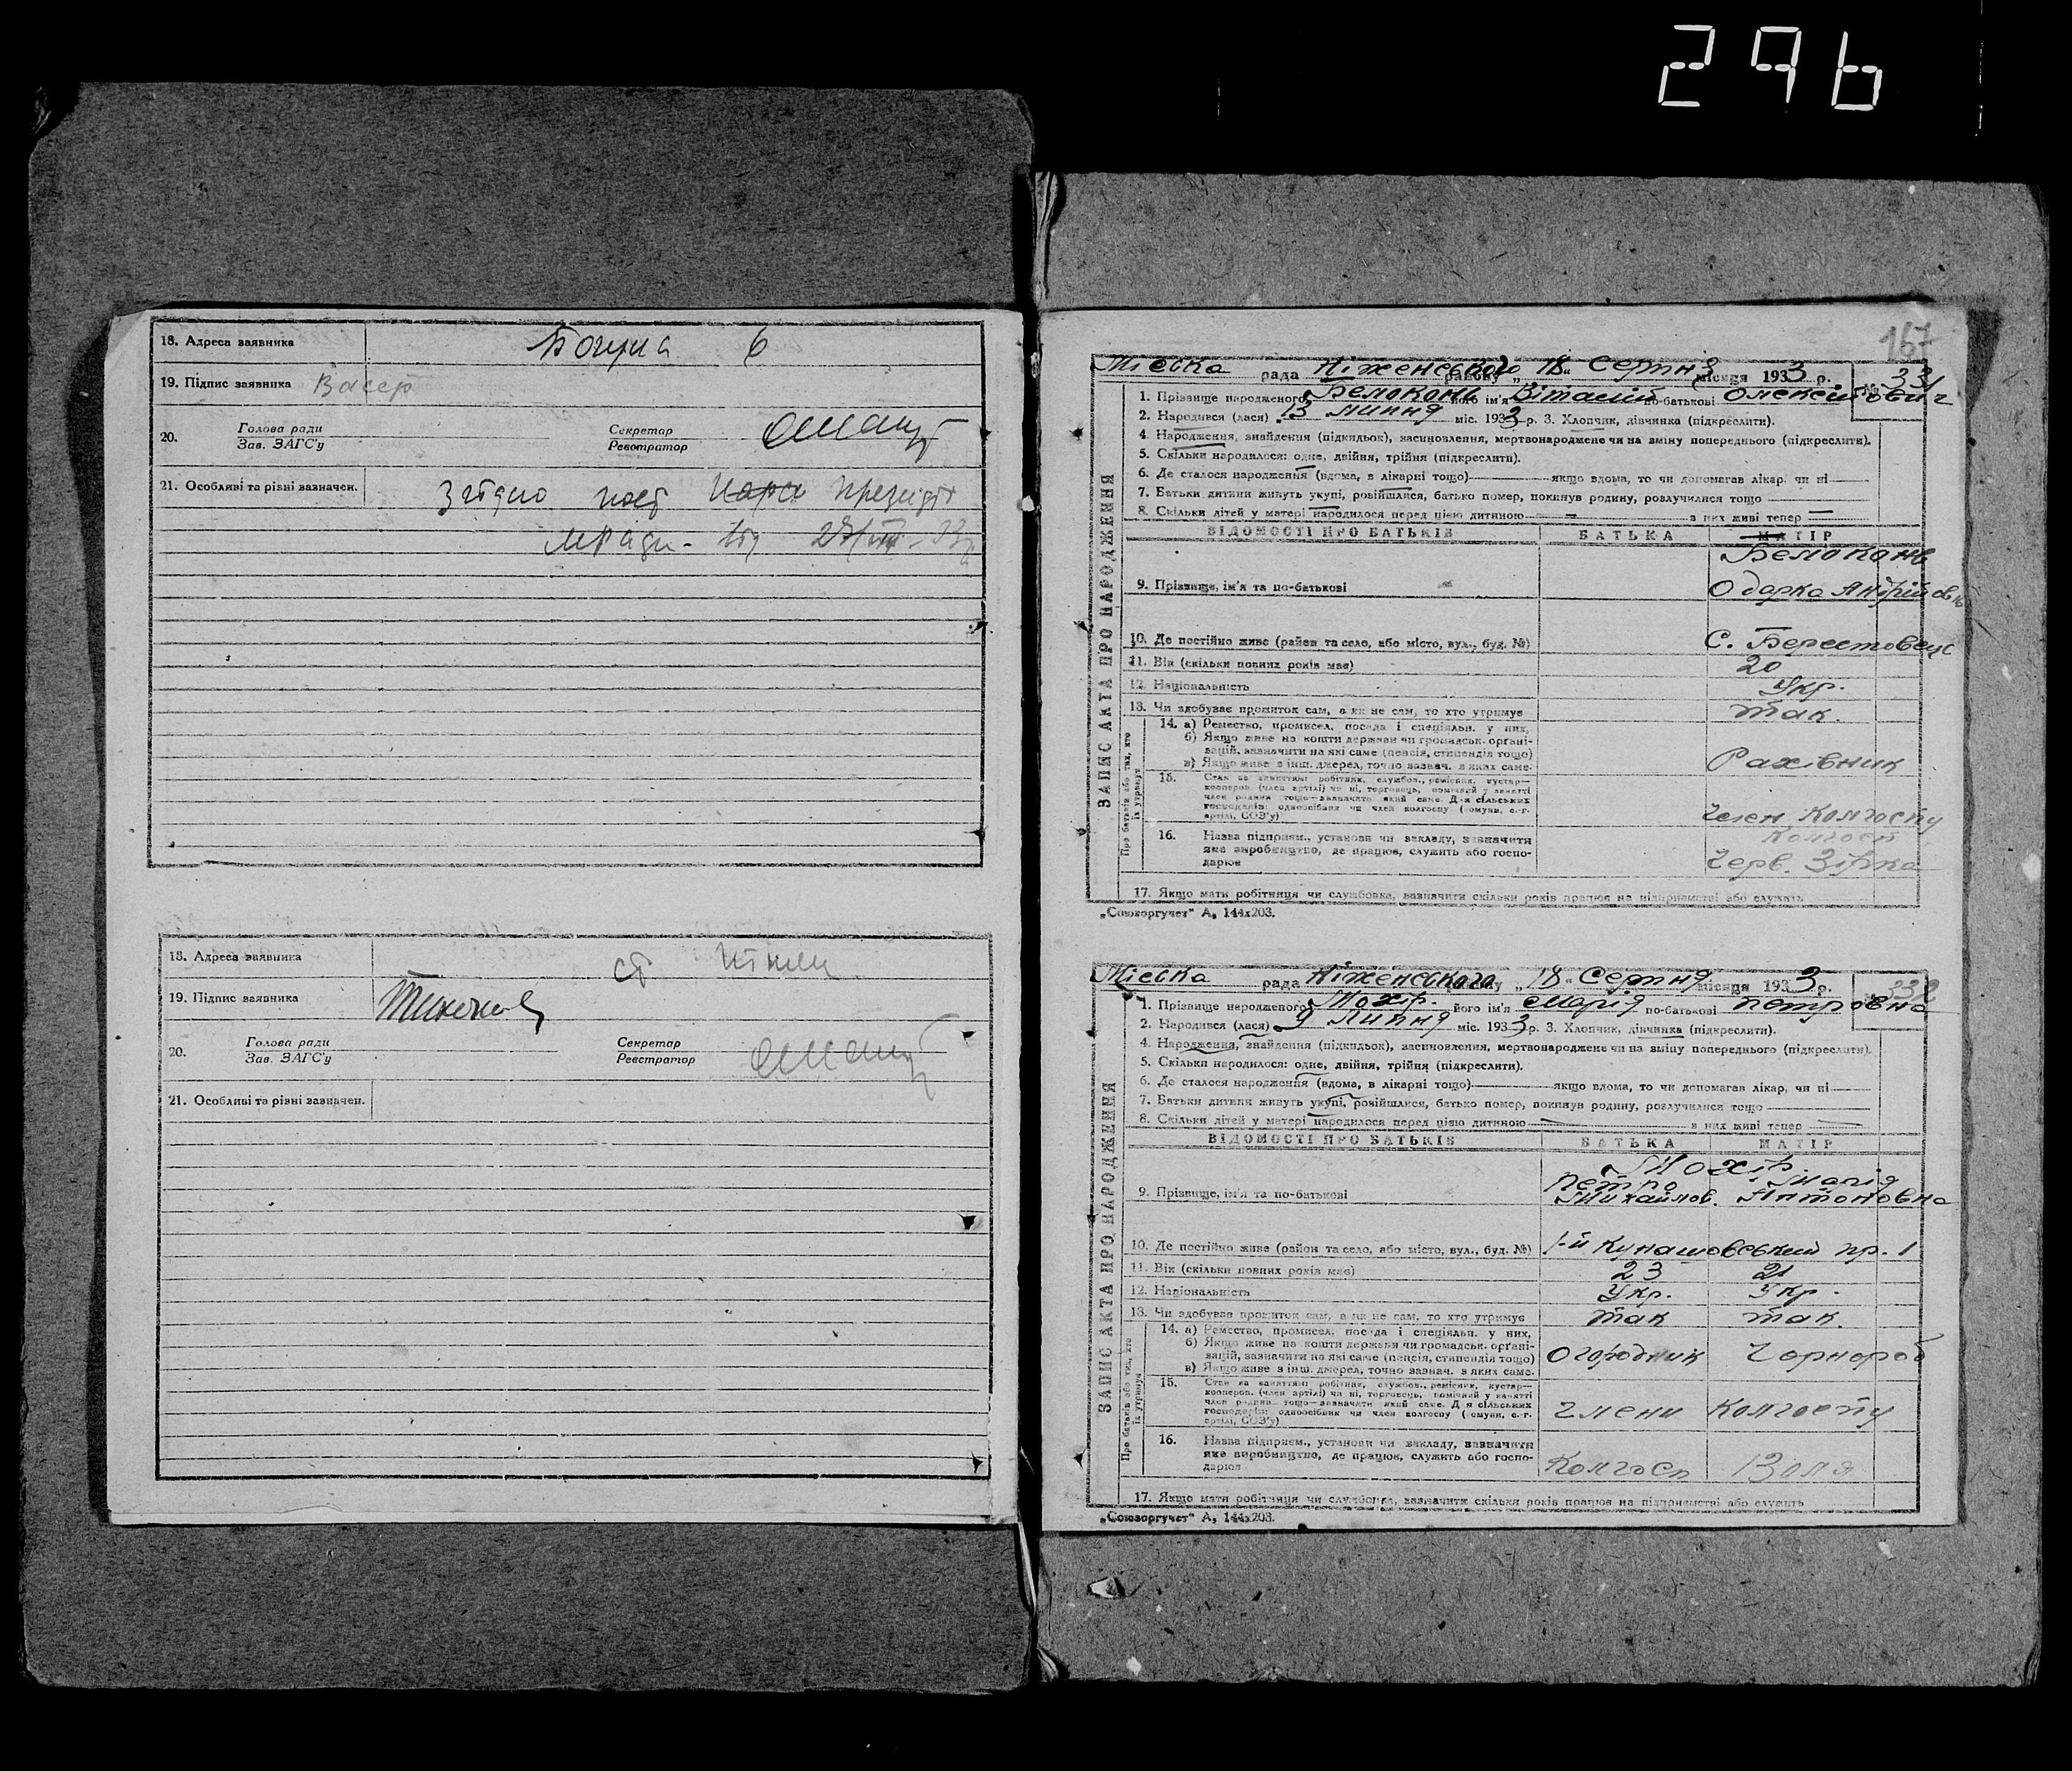 296
18. Адреса заявника Богуна 6
19. Підпис заявника Васер
20. Голова ради Секретар
Зав. ЗАГС'у Реєстратор
21. Особливі та різні зазначен. Згідно пост презид
від 28/VIII-33
18. Адреса заявника ст Ніжин
19. Підпис заявника
20. Голова ради Секретар
Зав. ЗАГС'у Реєстратор
21. Особливі та різні зазначен.
167
ЗАПИС АКТА ПРО НАРОДЖЕННЯ
Міська рада Ніженського району „18“ Серпня місяця 1933 р. № 331
1. Прізвище народженого Белоконь його ім'я Віталій по-батькові Олексійович
2. Народився (лася) 13 липня міс. 1933 р. 3. Хлопчик, дівчинка (підкреслити).
4. Народження, знайдення (підкидьок), засиновлення, мертвонароджене чи на зміну попереднього (підкреслити).
5. Скільки народилося: одне, двійня, трійня (підкреслити).
6. Де сталося народження (вдома, в лікарні тощо) якщо вдома, то чи допомагав лікар, чи ні
7. Батьки дитини живуть укупі, розійшлися, батько помер, покинув родину, розлучилися тощо
8. Скільки дітей у матері народилося перед цією дитиною — з них живі тепер —
ВІДОМОСТІ ПРО БАТЬКІВ БАТЬКА МАТІР
9. Прізвище, ім'я та по-батькові Белоконь
Одарка Андрійовна
10. Де постійно живе (район та село, або місто, вул., буд. №) С. Берестовець
11. Вік (скільки повних років має) 20
12. Національність Укр.
13. Чи здобуває прожиток сам, а як не сам, то хто утримує так.
Про батьків або тих, хто їх утримує
14. а) Ремество, промисел, посада і спеціяльн. у них,
б) Якщо живе на кошти держави чи громадськ. органі-
зацій, зазначити на які саме (пенсія, стипендія тощо)
в) Якщо живе з інш. джерел, точно зазнач. з яких саме. Рахівник
15. Стан за заняттям: робітник, службов., ремісник, кустар—
кооперов. (член артілі) чи ні, торговець, помічний у занятті
член родини тощо—зазначити який саме. Для сільських
господарів: одноосібник чи член колгоспу (комуни, с.-г.
артілі, СОЗ'у) Член Колгоспу
16. Назва підприєм., установи чи закладу, зазначити
яке виробництво, де працює, служить або госпо-
дарює Колгосп
Черв. Зірка
17. Якщо мати робітниця чи службовка, зазначити скільки років працює на підприємстві або служить
„Союзоргучет“ А₅ 144х203.
ЗАПИС АКТА ПРО НАРОДЖЕННЯ
Міська рада Ніженського району „18“ Серпня місяця 1933 р. № 332
1. Прізвище народженого Мохір. його ім'я Марія по-батькові Петровна
2. Народився (лася) 9 Липня міс. 1933 р. 3. Хлопчик, дівчинка (підкреслити).
4. Народження, знайдення (підкидьок), засиновлення, мертвонароджене чи на зміну попереднього (підкреслити).
5. Скільки народилося: одне, двійня, трійня (підкреслити).
6. Де сталося народження (вдома, в лікарні тощо) якщо вдома, то чи допомагав лікар, чи ні
7. Батьки дитини живуть укупі, розійшлися, батько помер, покинув родину, розлучилися тощо
8. Скільки дітей у матері народилося перед цією дитиною — з них живі тепер —
ВІДОМОСТІ ПРО БАТЬКІВ БАТЬКА МАТІР
Мохір
9. Прізвище, ім'я та по-батькові Петро Марія
Михайлов. Антоновна
10. Де постійно живе (район та село, або місто, вул., буд. №) 1-й Кунашовський пр. 1
11. Вік (скільки повних років має) 23 21
12. Національність Укр. Укр.
13. Чи здобуває прожиток сам, а як не сам, то хто утримує так так.
Про батьків або тих, хто їх утримує
14. а) Ремество, промисел, посада і спеціяльн. у них,
б) Якщо живе на кошти держави чи громадськ. органі-
зацій, зазначити на які саме (пенсія, стипендія тощо)
в) Якщо живе з інш. джерел, точно зазнач. з яких саме. Огородник Чорнороб
15. Стан за заняттям: робітник, службов., ремісник, кустар—
кооперов. (член артілі) чи ні, торговець, помічний у занятті
член родини тощо—зазначити який саме. Для сільських
господарів: одноосібник чи член колгоспу (комуни, с.-г.
артілі, СОЗ'у) Члени Колгоспу
16. Назва підприєм., установи чи закладу, зазначити
яке виробництво, де працює, служить або госпо-
дарює Колгосп Воля
17. Якщо мати робітниця чи службовка, зазначити скільки років працює на підприємстві або служить
„Союзоргучет“ А₅ 144х203.